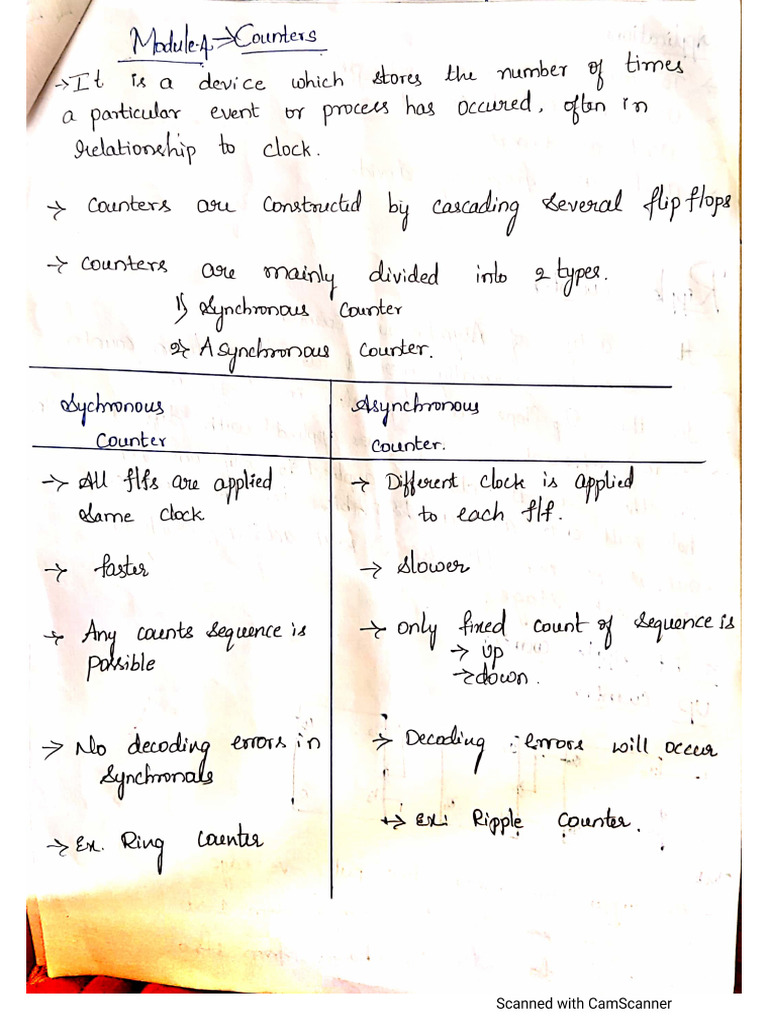 Module-4 → Counters
→ It is a device which stores the number of times
a particular event or process has occured, often in
relationship to clock.
→ Counters are constructed by cascading several flip flops
→ Counters are mainly divided into 2 types.
1) Synchronous Counter
2) Asynchronous Counter.
Sychronous
Counter
Asynchronous
Counter.
→ All f/fs are applied
same clock
→ Different clock is applied
to each f/f.
→ faster
→ Slower
→ Any counts sequence is
possible
→ Only fixed count of sequence is
→ up
→ down.
→ No decoding errors in
Synchronals
→ Decoding errors will occur
→ Ex. Ring Counter
→ Ex: Ripple Counter.
Scanned with CamScanner